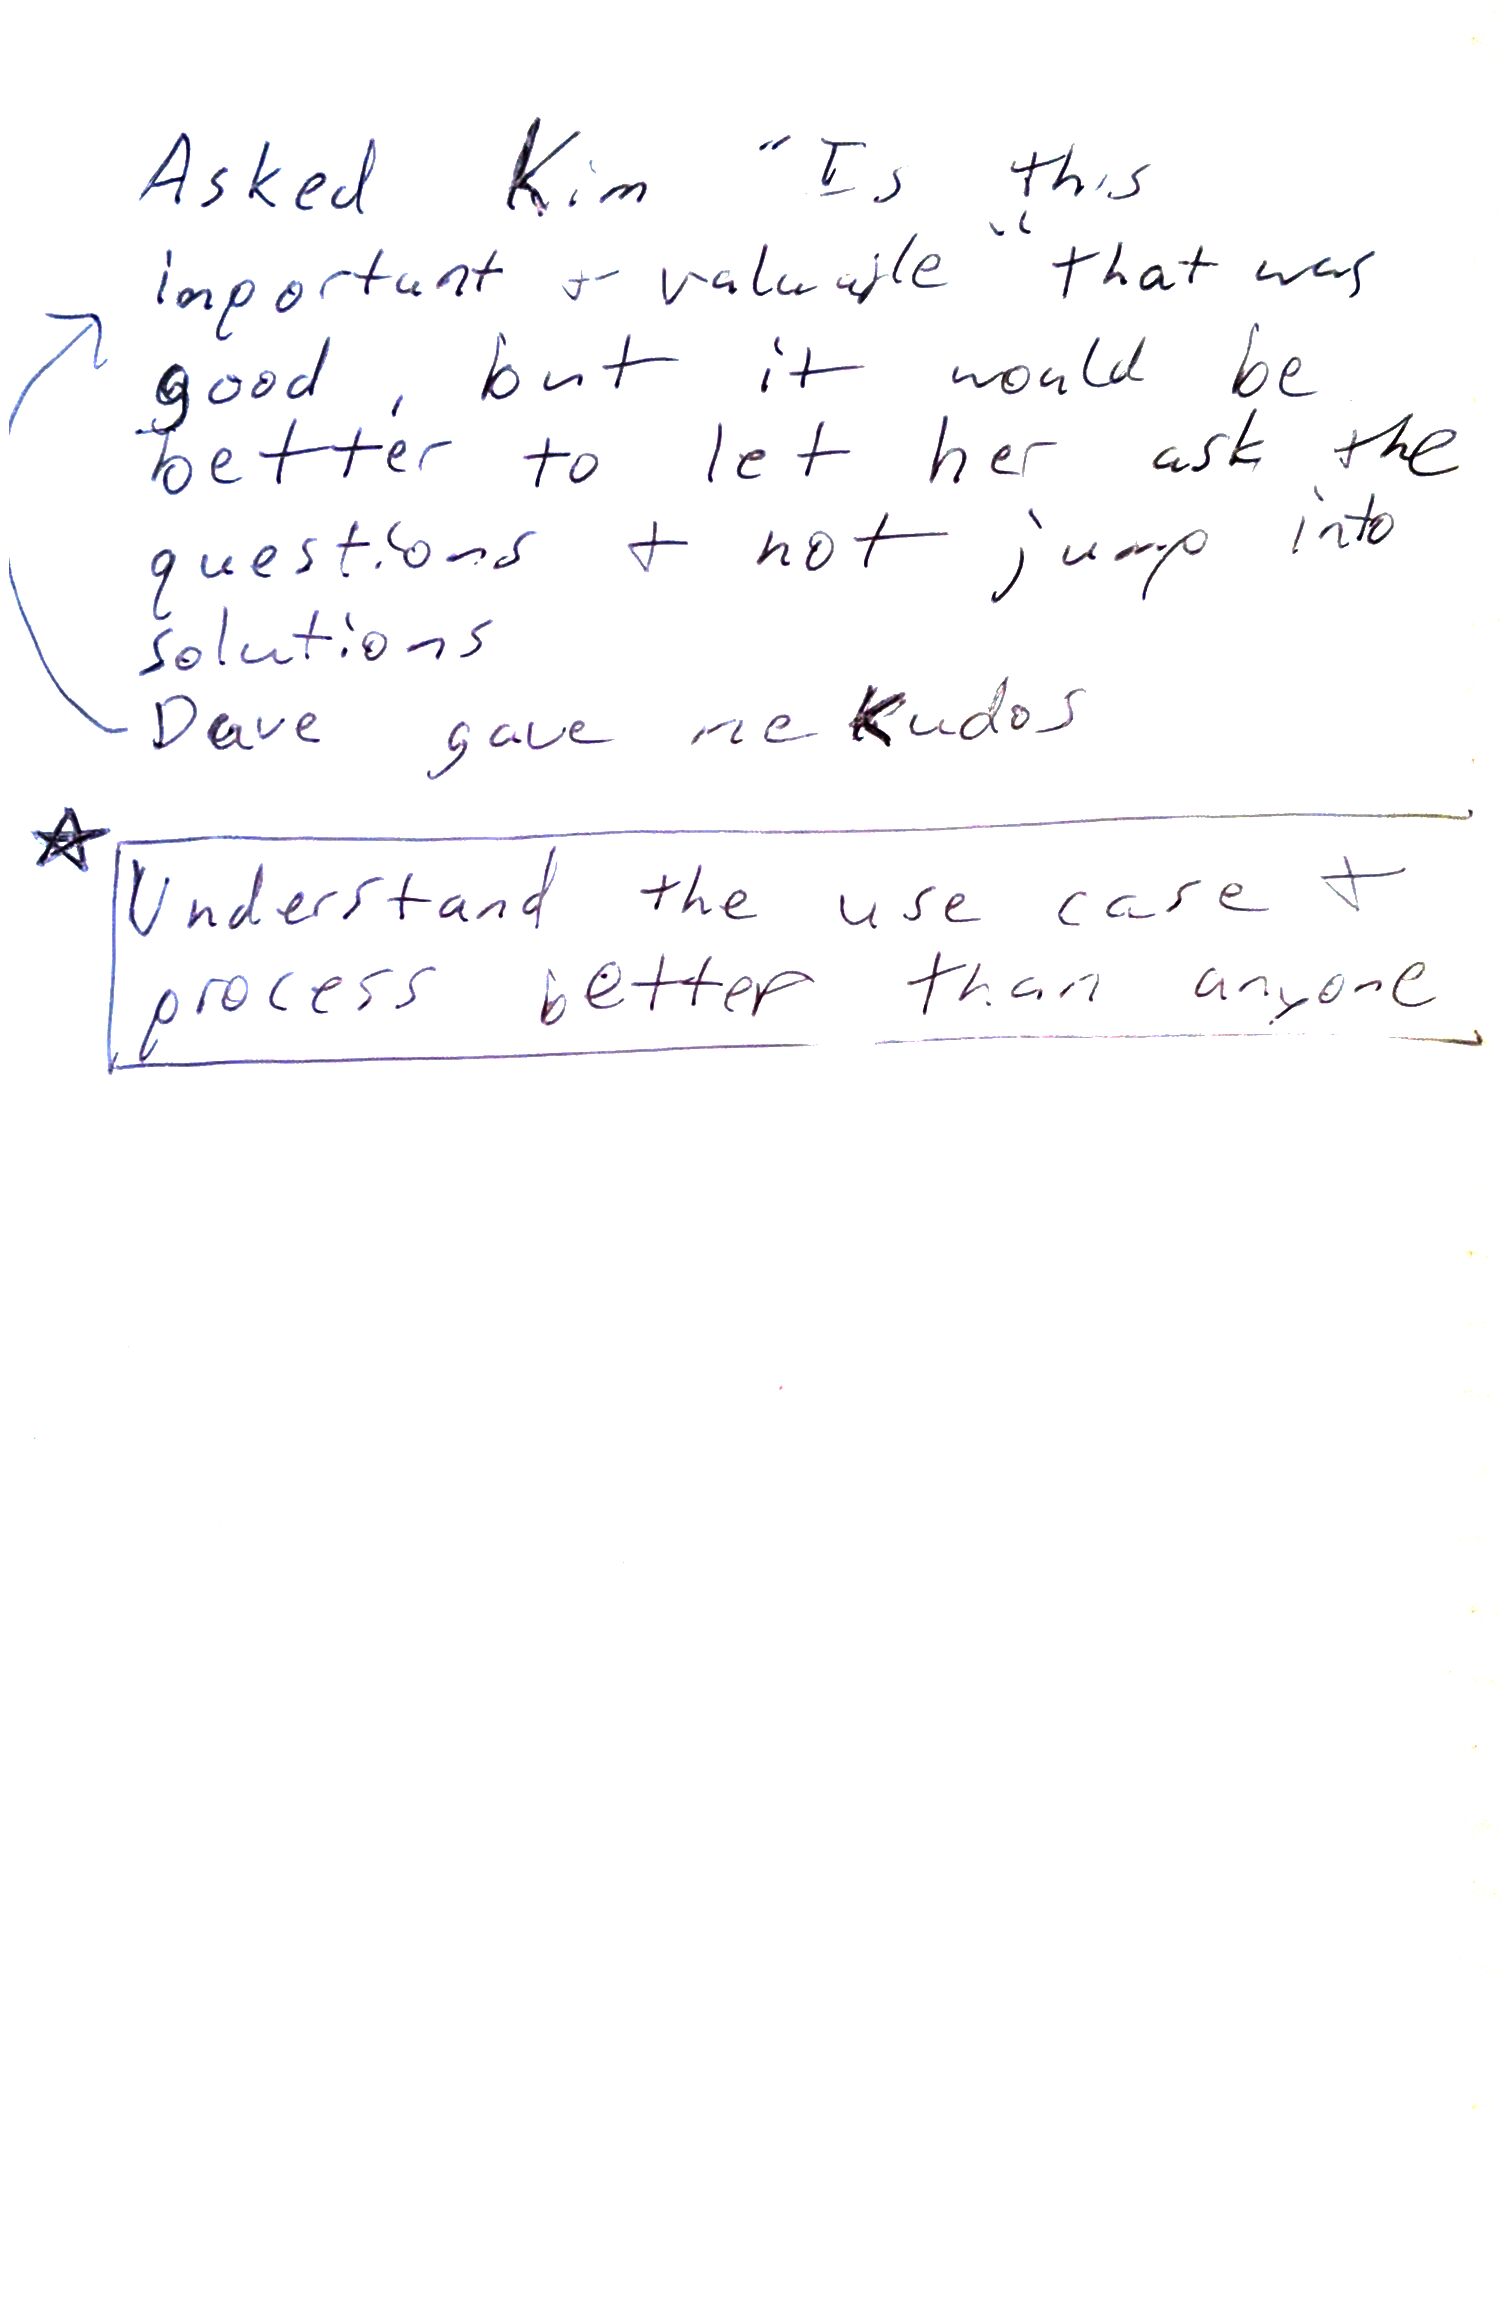 Asked Kim "Is this
important + valuable" that was
good, but it would be
better to let her ask the
questions + not jump into
solutions
Dave gave me Kudos
Understand the use case +
process better than anyone